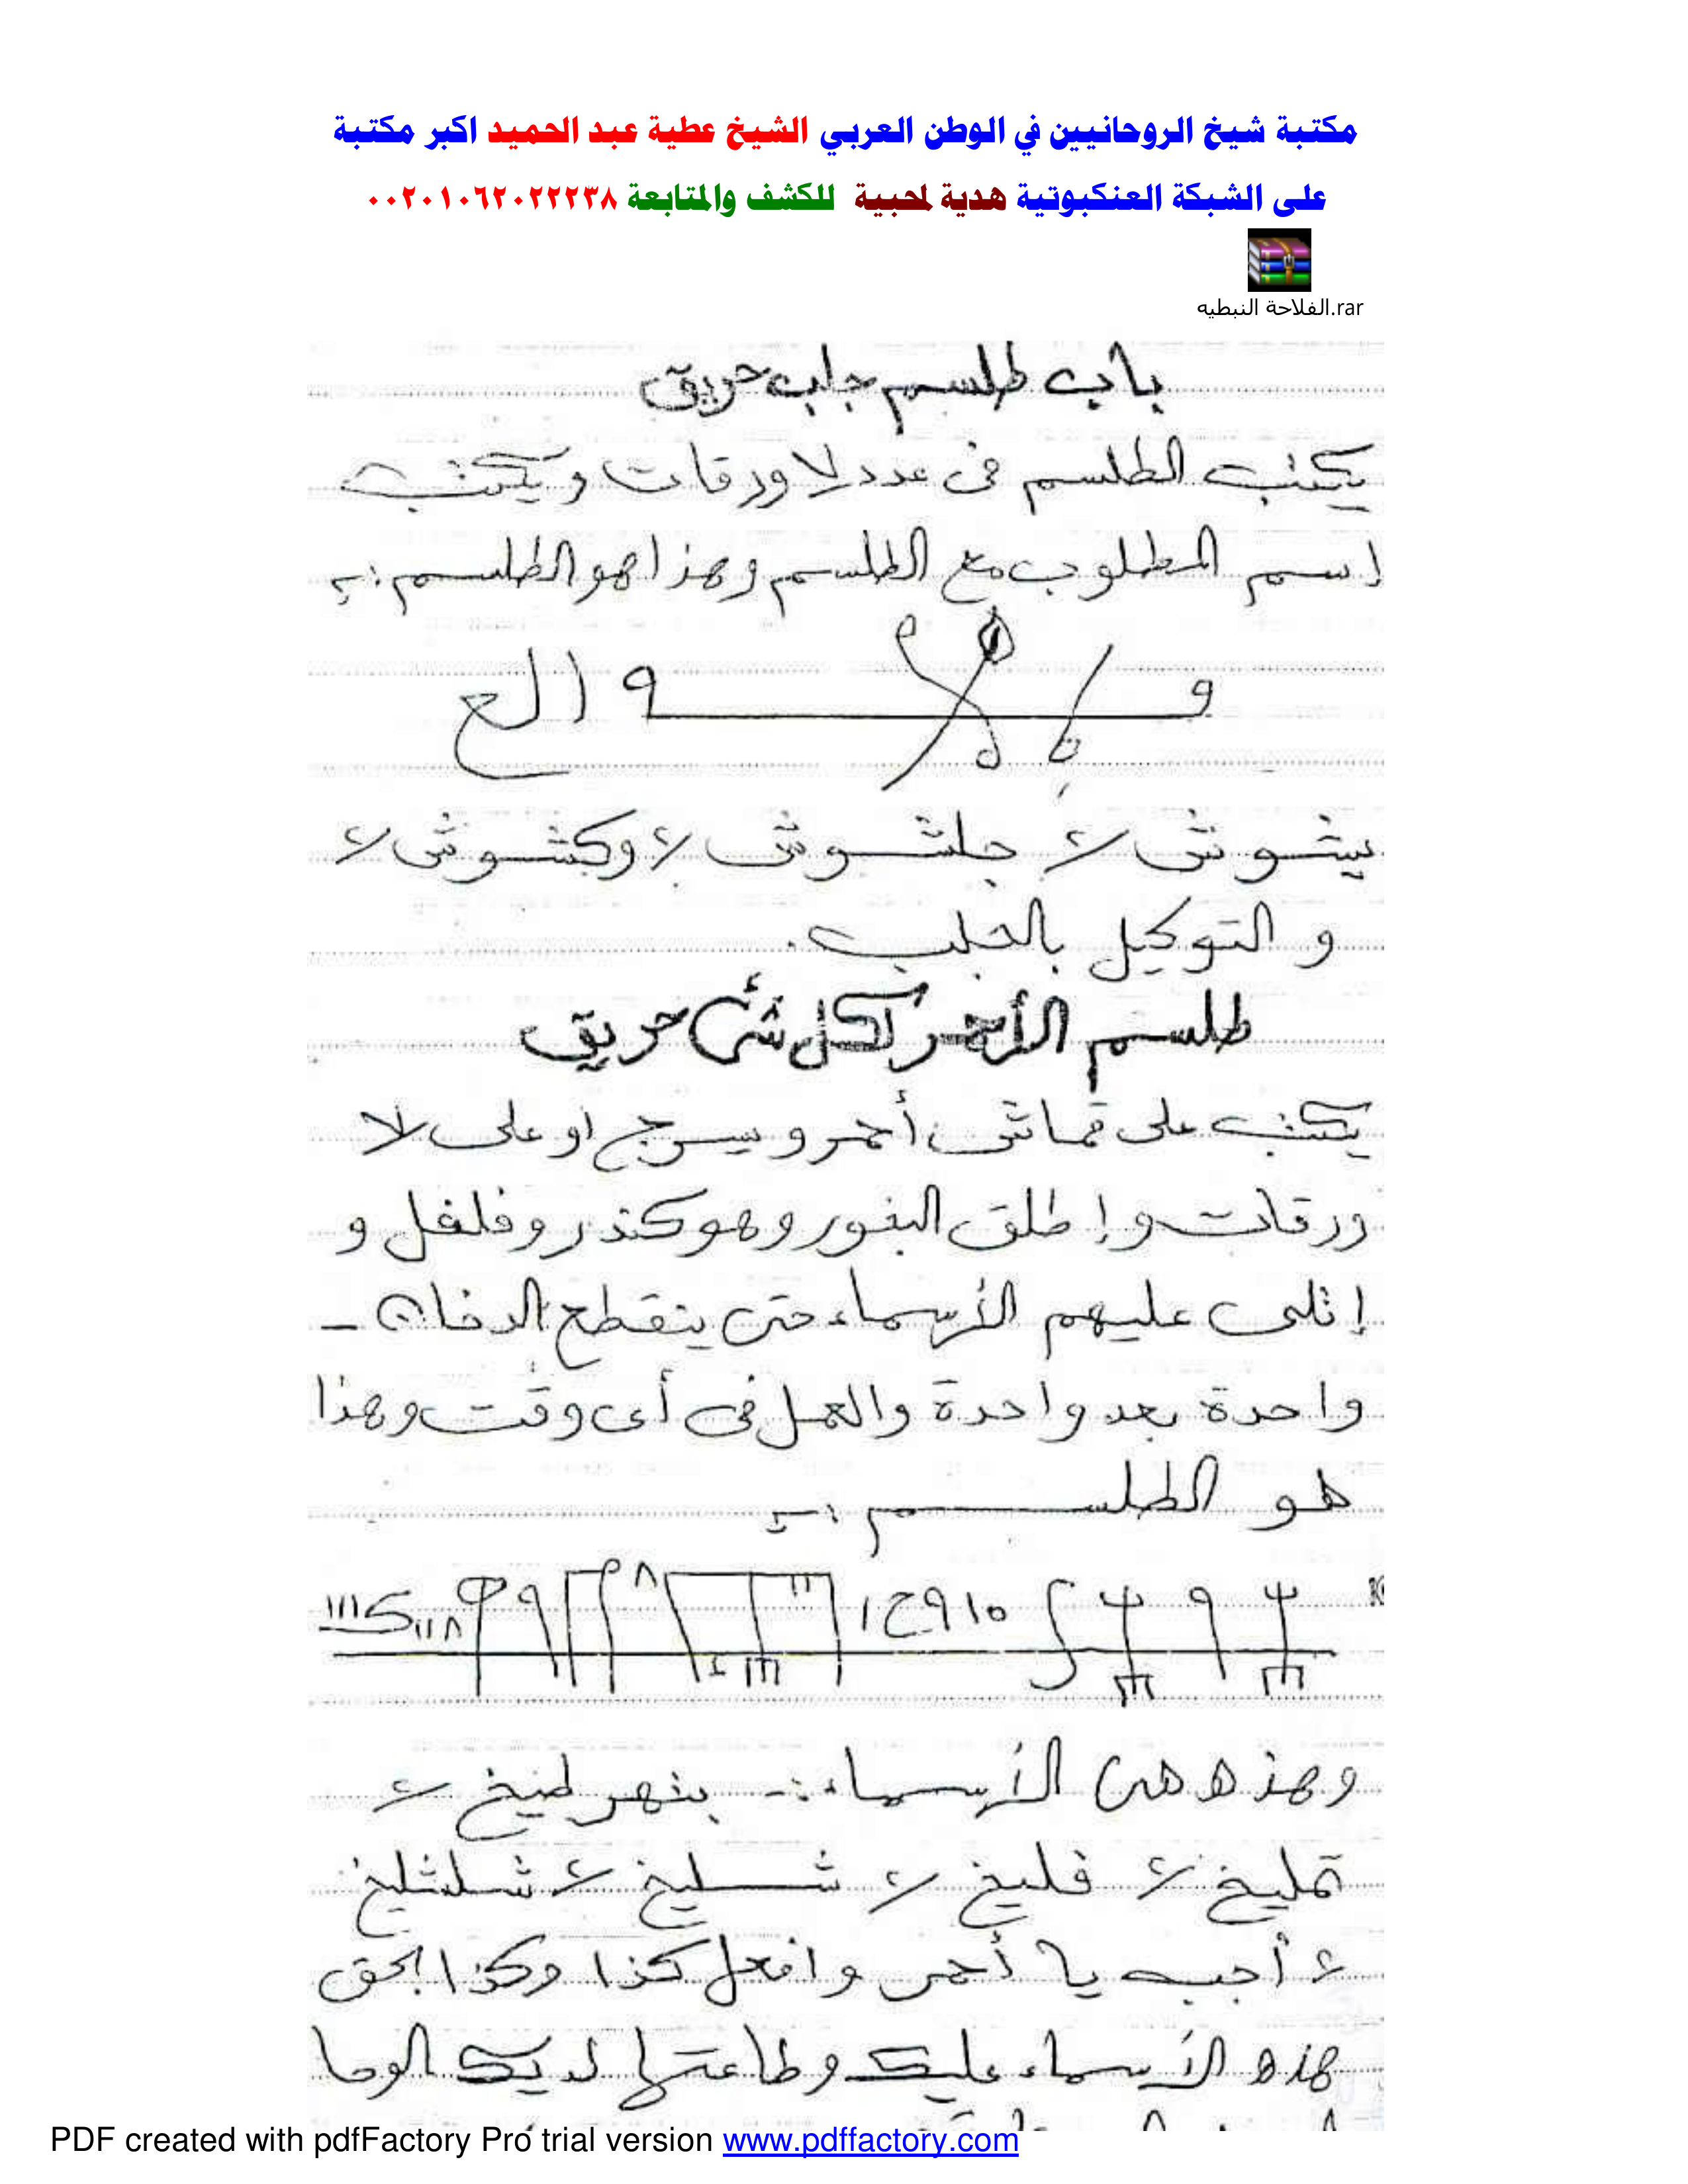 مكتبة شيخ الروحانيين في الوطن العربي الشيخ عطية عبد الحميد اكبر مكتبة
على الشبكة العنكبوتية هدية لمحبية للكشف والمتابعة ٠٠٢٠١٠٦٢٠٢٢٢٣٨
الفلاحة النبطيه.rar
باب طلسم جلب حريق
يكتب الطلسم فى عدد ٧ ورقات ويكتب
إسم المطلوب مع الطلسم وهذا هو الطلسم :-
بيشوش ٢ جلشوش ٢ وكشوش ٢
و التوكيل بالجلب.
طلسم الأحمر لكل شئ حريق
يكتب على قماش أحمر ويسرج او على ٧
ورقات وإطلق البخور وهو كندر وفلفل و
إتلى عليهم الأسماء حتى ينقطع الدخان -
واحدة بعد واحدة والعمل فى أى وقت وهذا
هو الطلسم :-
وهذه هى الأسماء :-
تمليخ ٢ فليخ ٢ شليخ ٢ شلشليخ
٢ أجب يا أحمر وافعل كذا وكذا بحق
هذه الأسماء عليك وطاعتها لديك الوحا
PDF created with pdfFactory Pro trial version www.pdffactory.com